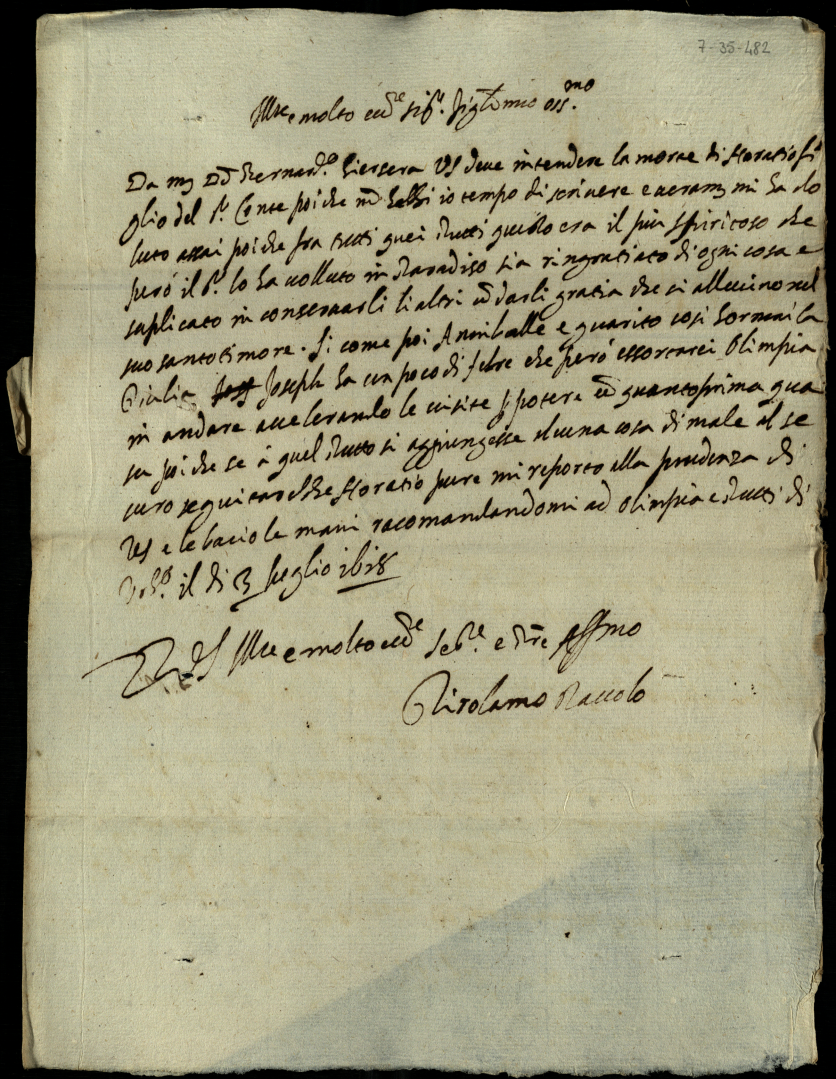 7-35-482
Ill.re e molto ecc.te Sig.r figliomio oss.mo
Da m Bernard.o hiersera VS deve intendere la morte di Horatio fi
glio del S.r Conte poiche nō hebbi io tempo di scrivere e veram mi ha do
luto assai poiche fra tutti quei putti quello era il più spiritoso che
però il S.r lo ha volluto in Paradiso sia ringratiato di ogni cosa e
suplicato in conservarli li altri cō darli gratia che si allevino nel
suo santo timore. Si come poi Anniballe e guarito cosi hormai la
Giulia Joseph ha un poco di febre che però essortarei Olimpia
in andare accelerando le visite p potere cō quantoprima qua
su poiche se à quel Putto si aggiungesse alcuna cosa di male al se
curo seguitarebbe Horatio pure mi reporto alla prudenza di
VS e le bacio le mani racomandandomi ad Olimpia e Putti di
il di 3 luglio 1618
Di VS Ill.re e molto ecc.te Se.re e P.re Aff.mo
Girolamo